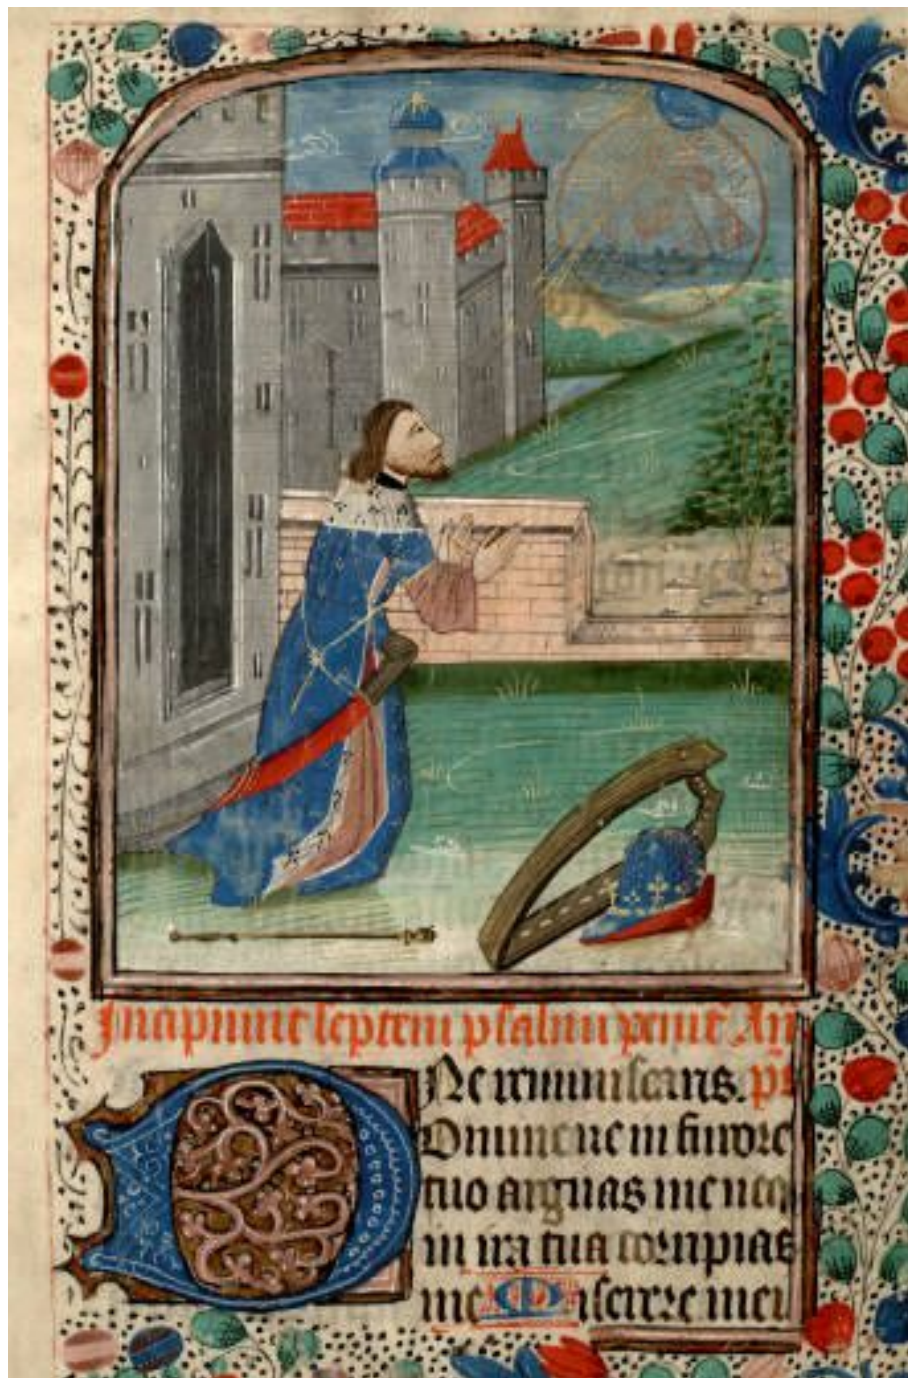 Incipiunt septem psalmi penit̄ Añ
Ne reminiscaris. ps
Domine ne in furore
tuo arguas me neq
in ira tua corripias
me Miserere mei